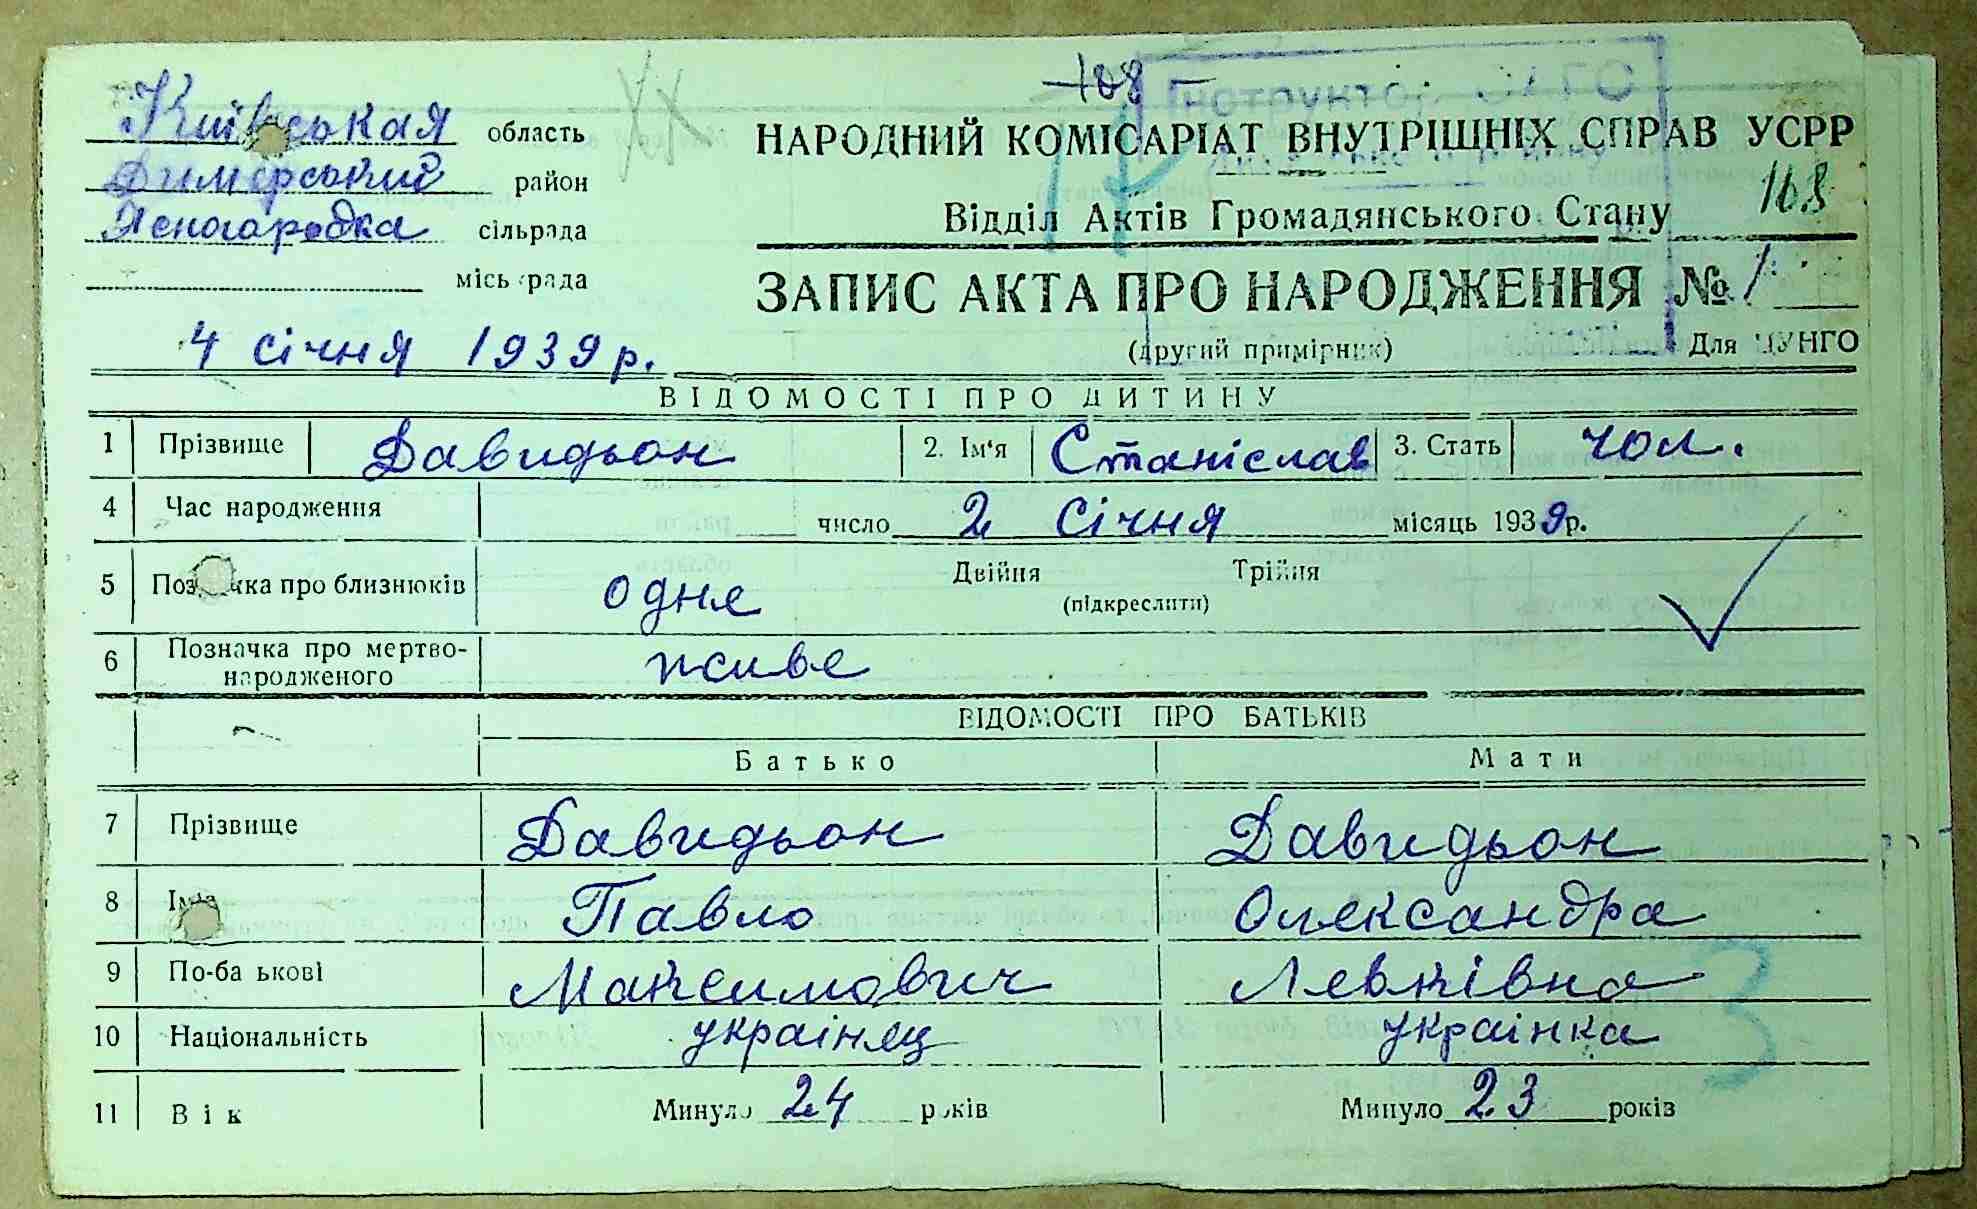 Київськая область
Димерський район
Ясногородка сільрада
міськрада
4 січня 1939 р.
108
Інструктор ЗАГС
НАРОДНИЙ КОМІСАРІАТ ВНУТРІШНІХ СПРАВ УСРР
Відділ Актів Громадянського Стану
168
ЗАПИС АКТА ПРО НАРОДЖЕННЯ № 1
(другий примірник) Для ЦУНГО
ВІДОМОСТІ ПРО ДИТИНУ
1 Прізвище Давидьон 2. Ім'я Станіслав 3. Стать чол.
4 Час народження число 2 Січня місяць 1939р.
5 Позначка про близнюків одне Двійня Трійня
(підкреслити)
6 Позначка про мертво-
народженого живе
ВІДОМОСТІ ПРО БАТЬКІВ
Батько Мати
7 Прізвище Давидьон Давидьон
8 Ім'я Павло Олександра
9 По-батькові Максимович Левківна
10 Національність українец українка
11 Вік Минуло 24 років Минуло 23 років
3